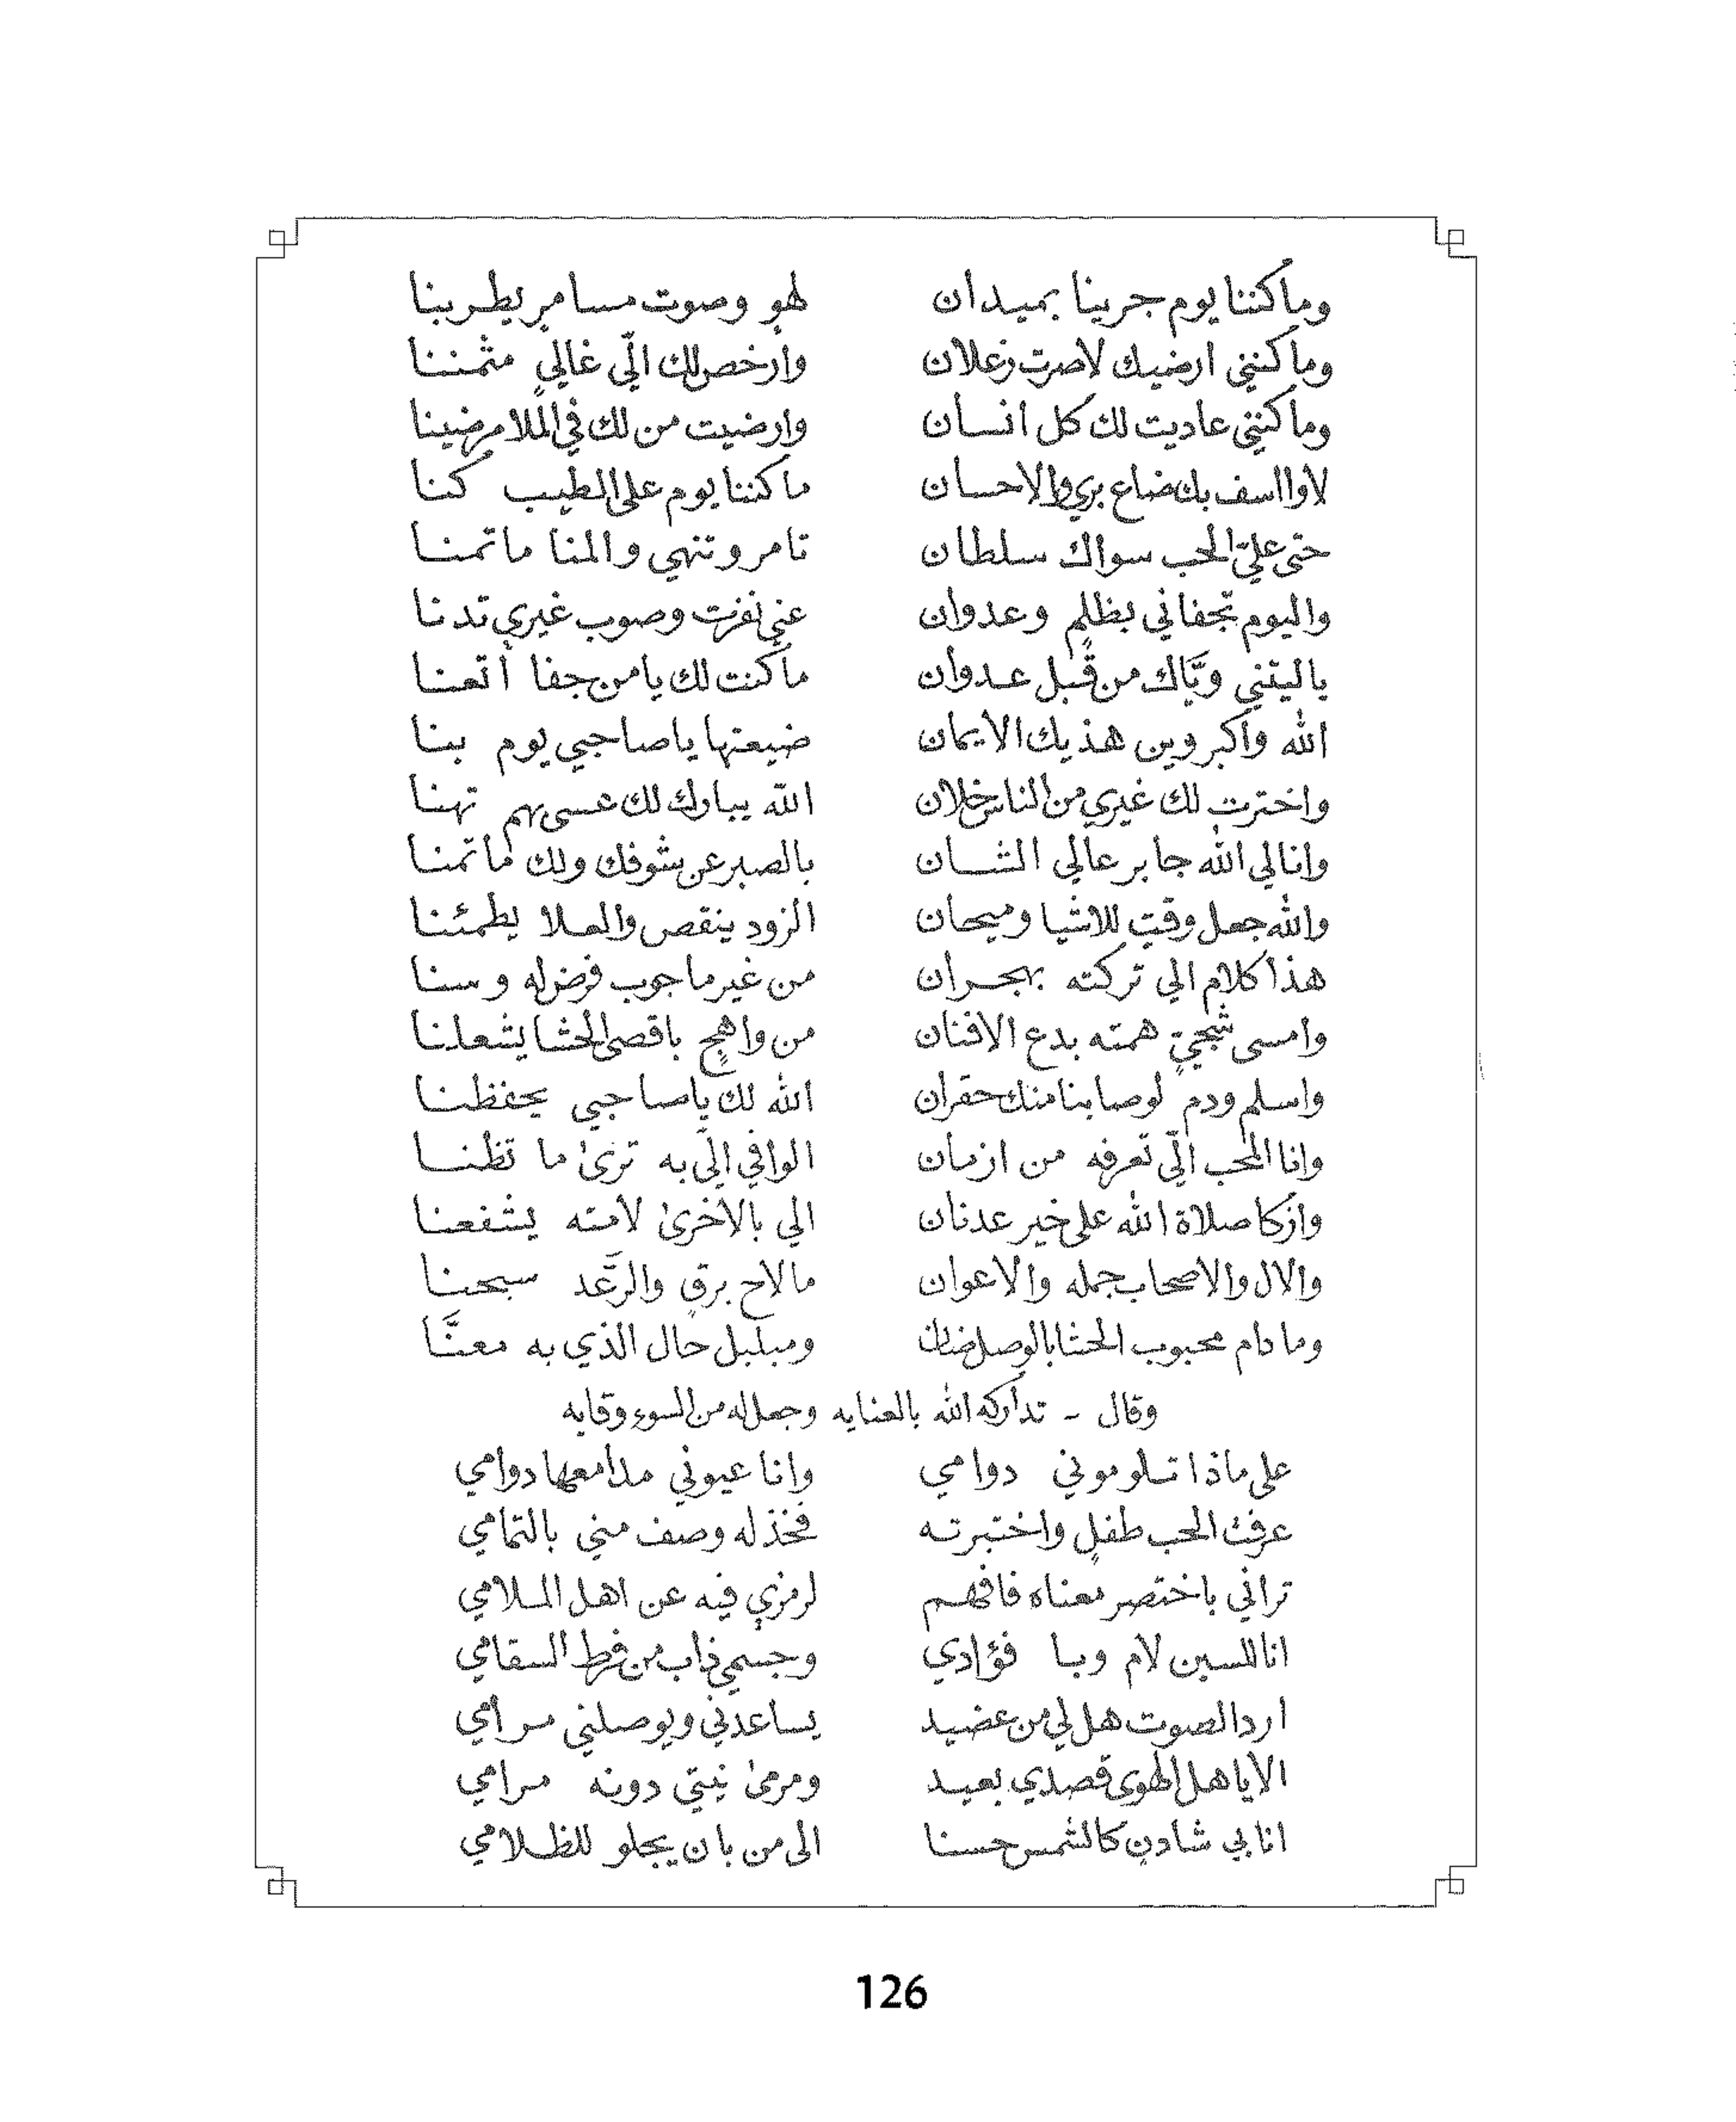 وماكننا يوم جرينا بميدان لهوٍ وصوت مسامرٍ يطربنا
وماكنني ارضيك لاصرت زعلان وارخص لك الّي غاليٍ مثمننا
وماكنني عاديت لك كل انسان وارضيت من لك في الملا مرضينا
لاوا اسف بك ضاع بري والاحسان ماكننا يوم على الطيب كنا
حتى عليّ الحب سواك سلطان تامر وتنهي والمنا ماتمنا
واليوم تجفاني بظلمٍ وعدوان عني نفرت وصوب غيري تدنا
ياليتني ويّاك من قبل عدوان ماكنت لك يامن جفا أتعنا
الله واكبر وين هذيك الايمان ضيعتها ياصاحبي يوم بنا
واخترت لك غيري من الناس خلان الله يبارك لك عسى بهم تهنا
وانا لي الله جابر عالي الشان بالصبر عن شوفك ولك ماتمنا
والله جعل وقتٍ للاشيا وميحان الزود ينقص والعلا يطمئنا
هذا كلام الي تركته بهجران من غير ماجوب فرضله وسنا
وامسى شجيٍ همته بدع الافنان من واهجٍ باقصى الحشا يشعلنا
واسلم ودم لوصابنا منك حقران الله لك ياصاحبي يحفظنا
وانا المحب الّي تعرفه من ازمان الوافي الّي به ترىٰ ما تظنا
وازكا صلاة الله على خير عدنان الي بالاخرىٰ لامته يشفعنا
والال والاصحاب جمله والاعوان مالاح برقٍ والرّعد سبحنا
ومادام محبوب الحشا بالوصل ضنان ومبلبل حال الذي به معنَّا
وقال - تداركه الله بالعنايه وجعل له من السوء وقايه
على ماذا تلوموني دوامي وانا عيوني مدامعها دوامي
عرفت الحب طفلٍ واختبرته فخذ له وصف مني بالتمامي
تراني باختصر معناه فافهم لرمزيٍ فيه عن اهل الملامي
انا للسين لام وبا فؤادي وجسمي ذاب من فرط السقامي
ارد الصوت هل لي من عضيد يساعدني ويوصلني مرامي
الا ياهل الهوى قصدي بعيد ومرمىٰ نيتي دونه مرامي
انا بي شادنٍ كالشمس حسنا الى من بان يجلو للظلامي
126